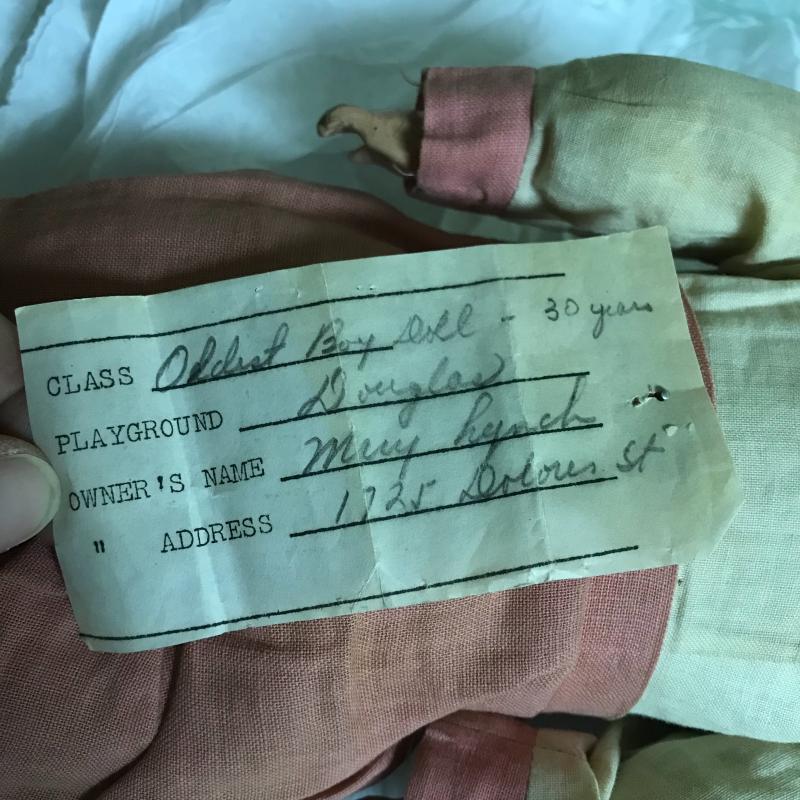 CLASS Oldest Boy Doll - 30 years
PLAYGROUND Douglas
OWNER'S NAME Mary Lynch
" ADDRESS 1725 Dolores St